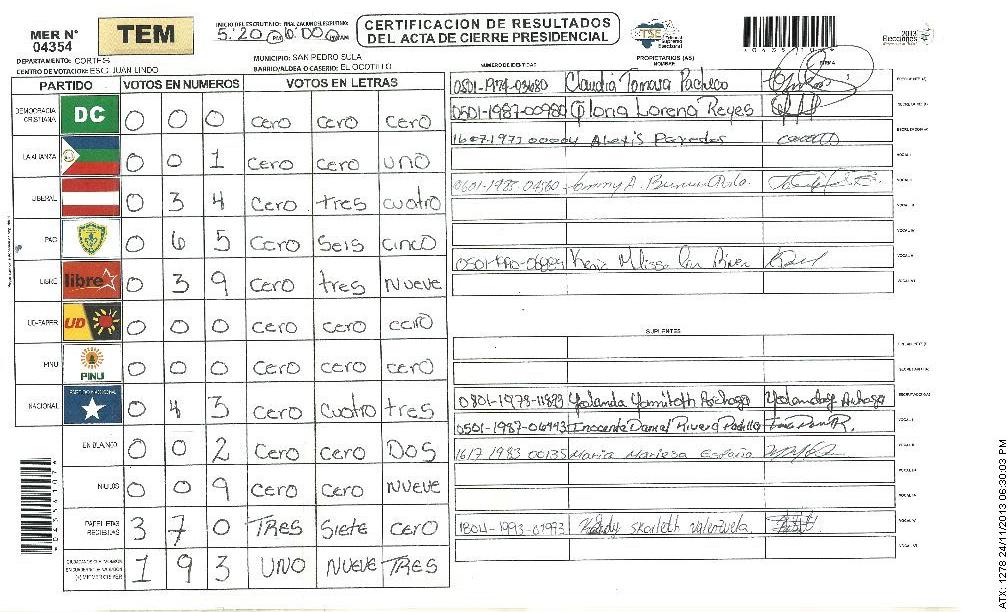 MER N° 04354
TEM
INICIO DEL ESCRUTINIO: FINALIZACION DEL ESCRUTINIO:
5:20 PM 6:00 PM AM
CERTIFICACION DE RESULTADOS
DEL ACTA DE CIERRE PRESIDENCIAL
TSE Tribunal Supremo Electoral
2013
Elecciones
DEPARTAMENTO: CORTES
MUNICIPIO: SAN PEDRO SULA
CENTRO DE VOTACION: ESC. JUAN LINDO
BARRIO/ALDEA O CASERIO: EL OCOTILLO
PARTIDO VOTOS EN NUMEROS VOTOS EN LETRAS
DEMOCRACIA CRISTIANA DC 0 0 0 cero cero cero
LA ALIANZA 0 0 1 cero cero uno
LIBERAL 0 3 4 cero tres cuatro
PAC 0 6 5 cero seis cinco
LIBRE libre 0 3 9 cero tres nueve
UD-FAPER UD 0 0 0 cero cero cero
PINU PINU 0 0 0 cero cero cero
NACIONAL PARTIDO NACIONAL 0 4 3 cero cuatro tres
EN BLANCO 0 0 2 cero cero Dos
NULOS 0 0 9 cero cero nueve
PAPELETAS RECIBIDAS 3 7 0 TRES Siete cero
1 9 3 UNO NUEVE TRES
NUMERO DE IDENTIDAD PROPIETARIOS (AS) NOMBRE FIRMA
0501-1974-03680 Claudia Tamara Pacheco
0501-1987-00980 Gloria Lorena Reyes
1607-1973 00004 Alexis Paredes
0601-1985 04560
SUPLENTES
0801-1978-11893 Yolanda Yamileth Archaga
0501-1987-06993 Inocente Daniel Rivera Padilla
1617 1983 00135 Maria Mariesa España
1804-1993-01993 Skarleth Valenzuela
ATX: 1278 24/11/2013 06:30:03 PM